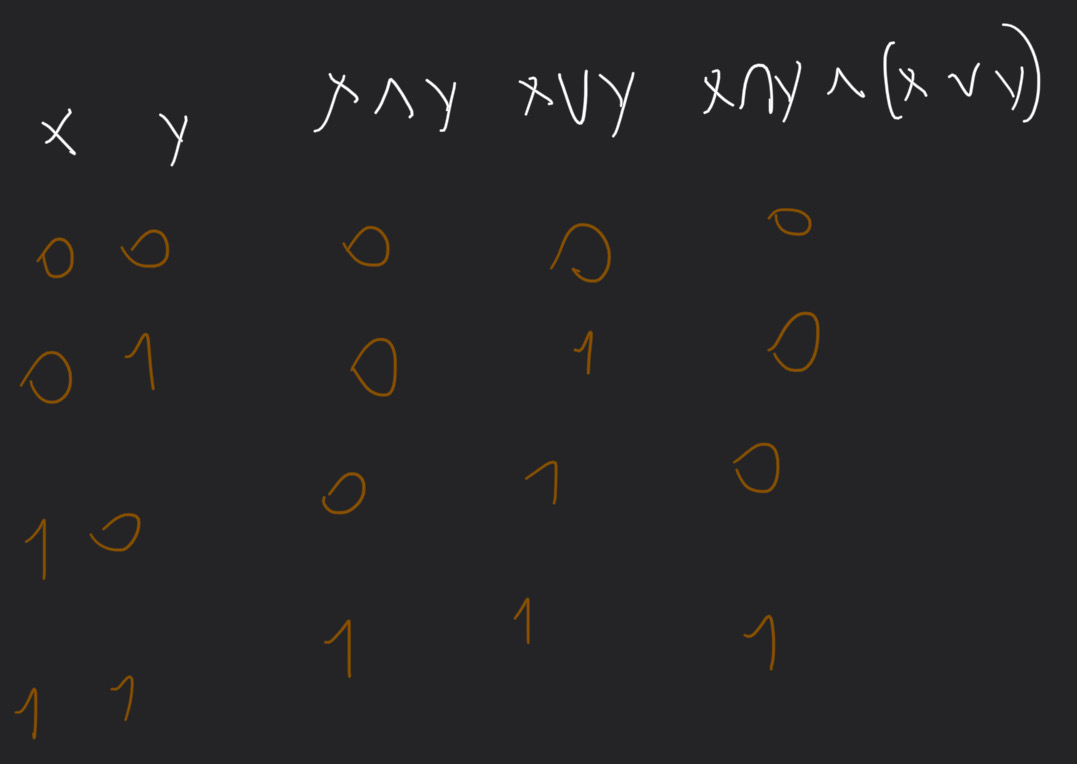 x y x∧y x∨y x∧y ∧ (x ∨ y)
0 0 0 0 0
0 1 0 1 0
1 0 0 1 0
1 1 1 1 1